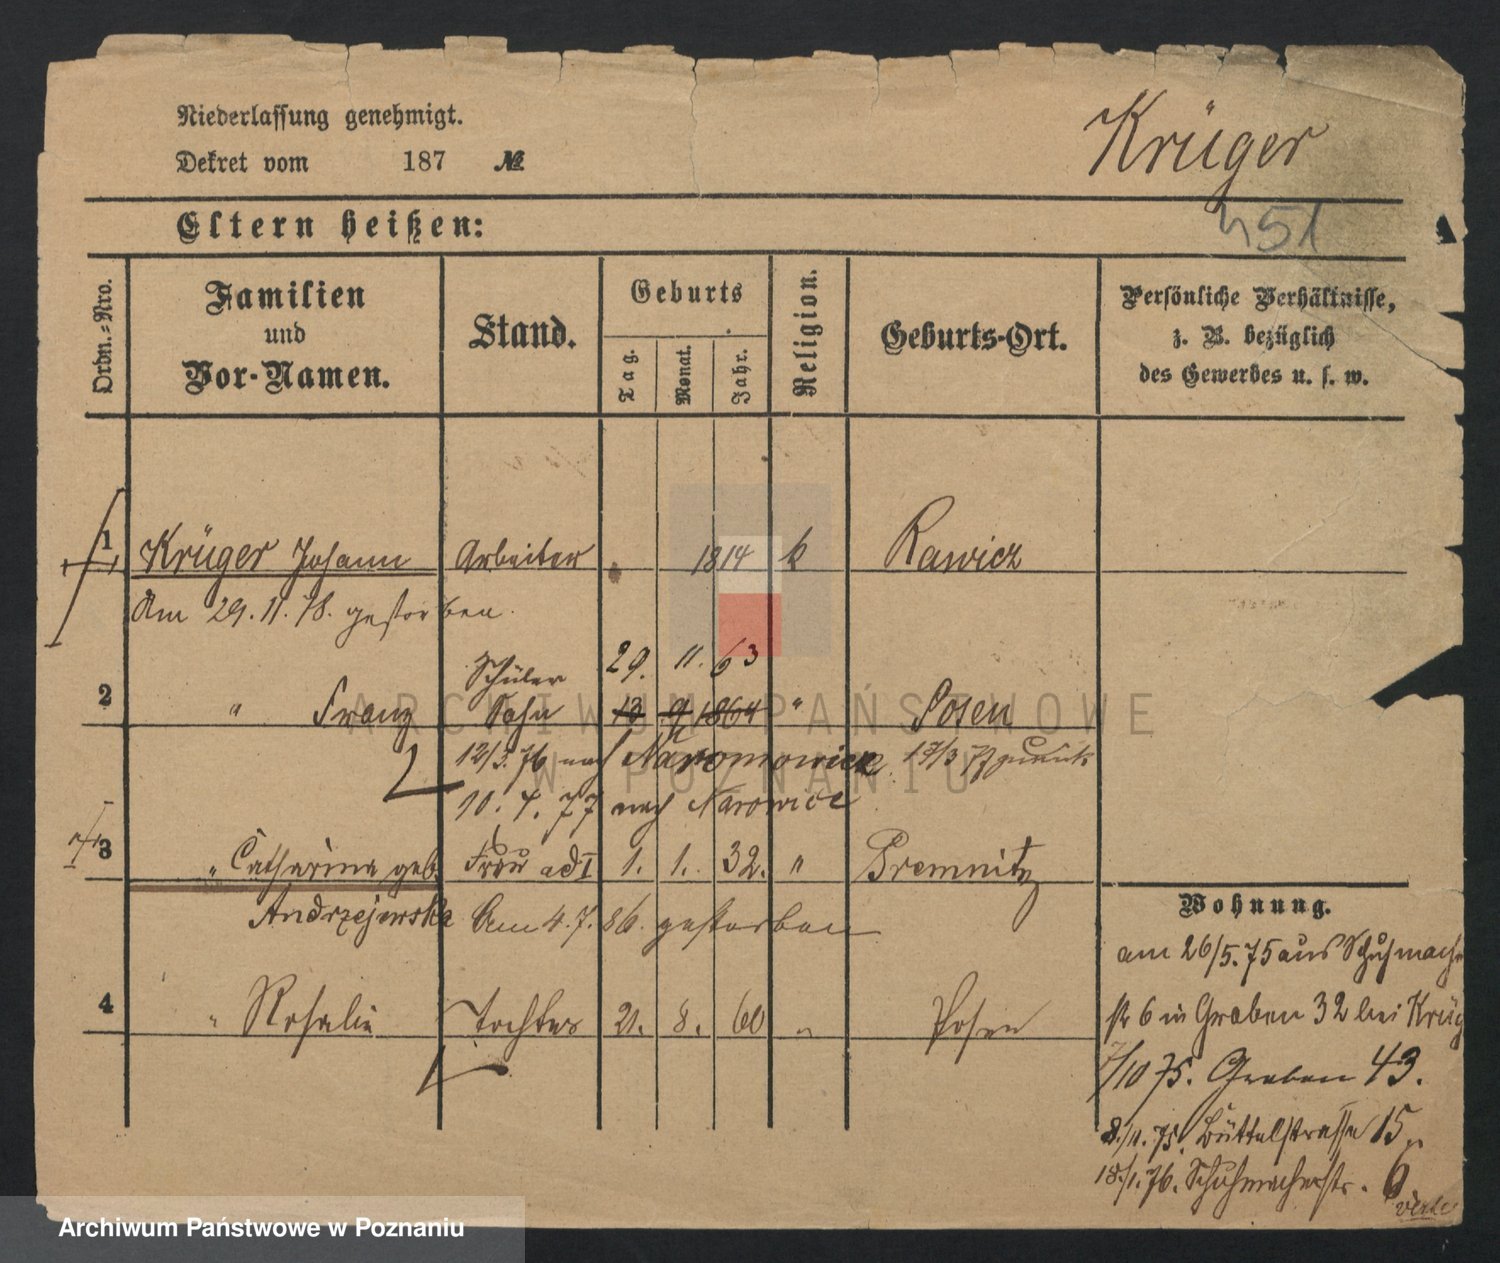 Niederlassung genehmigt.
Dekret vom 187 №
Krüger
451
Eltern heißen:
Ordn.-Nro.
Familien
und
Vor-Namen.
Stand.
Geburts
Tag.
Monat.
Jahr.
Religion.
Geburts-Ort.
Persönliche Verhältnisse,
z. B. bezüglich
des Gewerbes u. s. w.
1 Krüger Johann Arbeiter 1814 k Rawicz
Am 29. 11. 78. gestorben.
Schüler 29. 11. 63
2 " Franz Sohn 13 9 1864 " Posen
12/3. 76 nach Naromowice 17/3 77 zurück
10. 4. 77 nach Narowice
3 " Catharina geb. Frau ad I 1. 1. 32. " Premnitz
Andrzejewska Am 4. 7. 86. gestorben
4 " Rosalie Tochter 21. 8. 60 " Posen
Wohnung.
am 26/5. 75 aus Schuhmach
str 6 in Graben 32 bei Krüg
7/10 75. Graben 43.
8./11. 75. Büttelstrasse 15
18./1. 76. Schuhmacherstr. 6
verte
ARCHIWUM PAŃSTWOWE
W POZNANIU
Archiwum Państwowe w Poznaniu